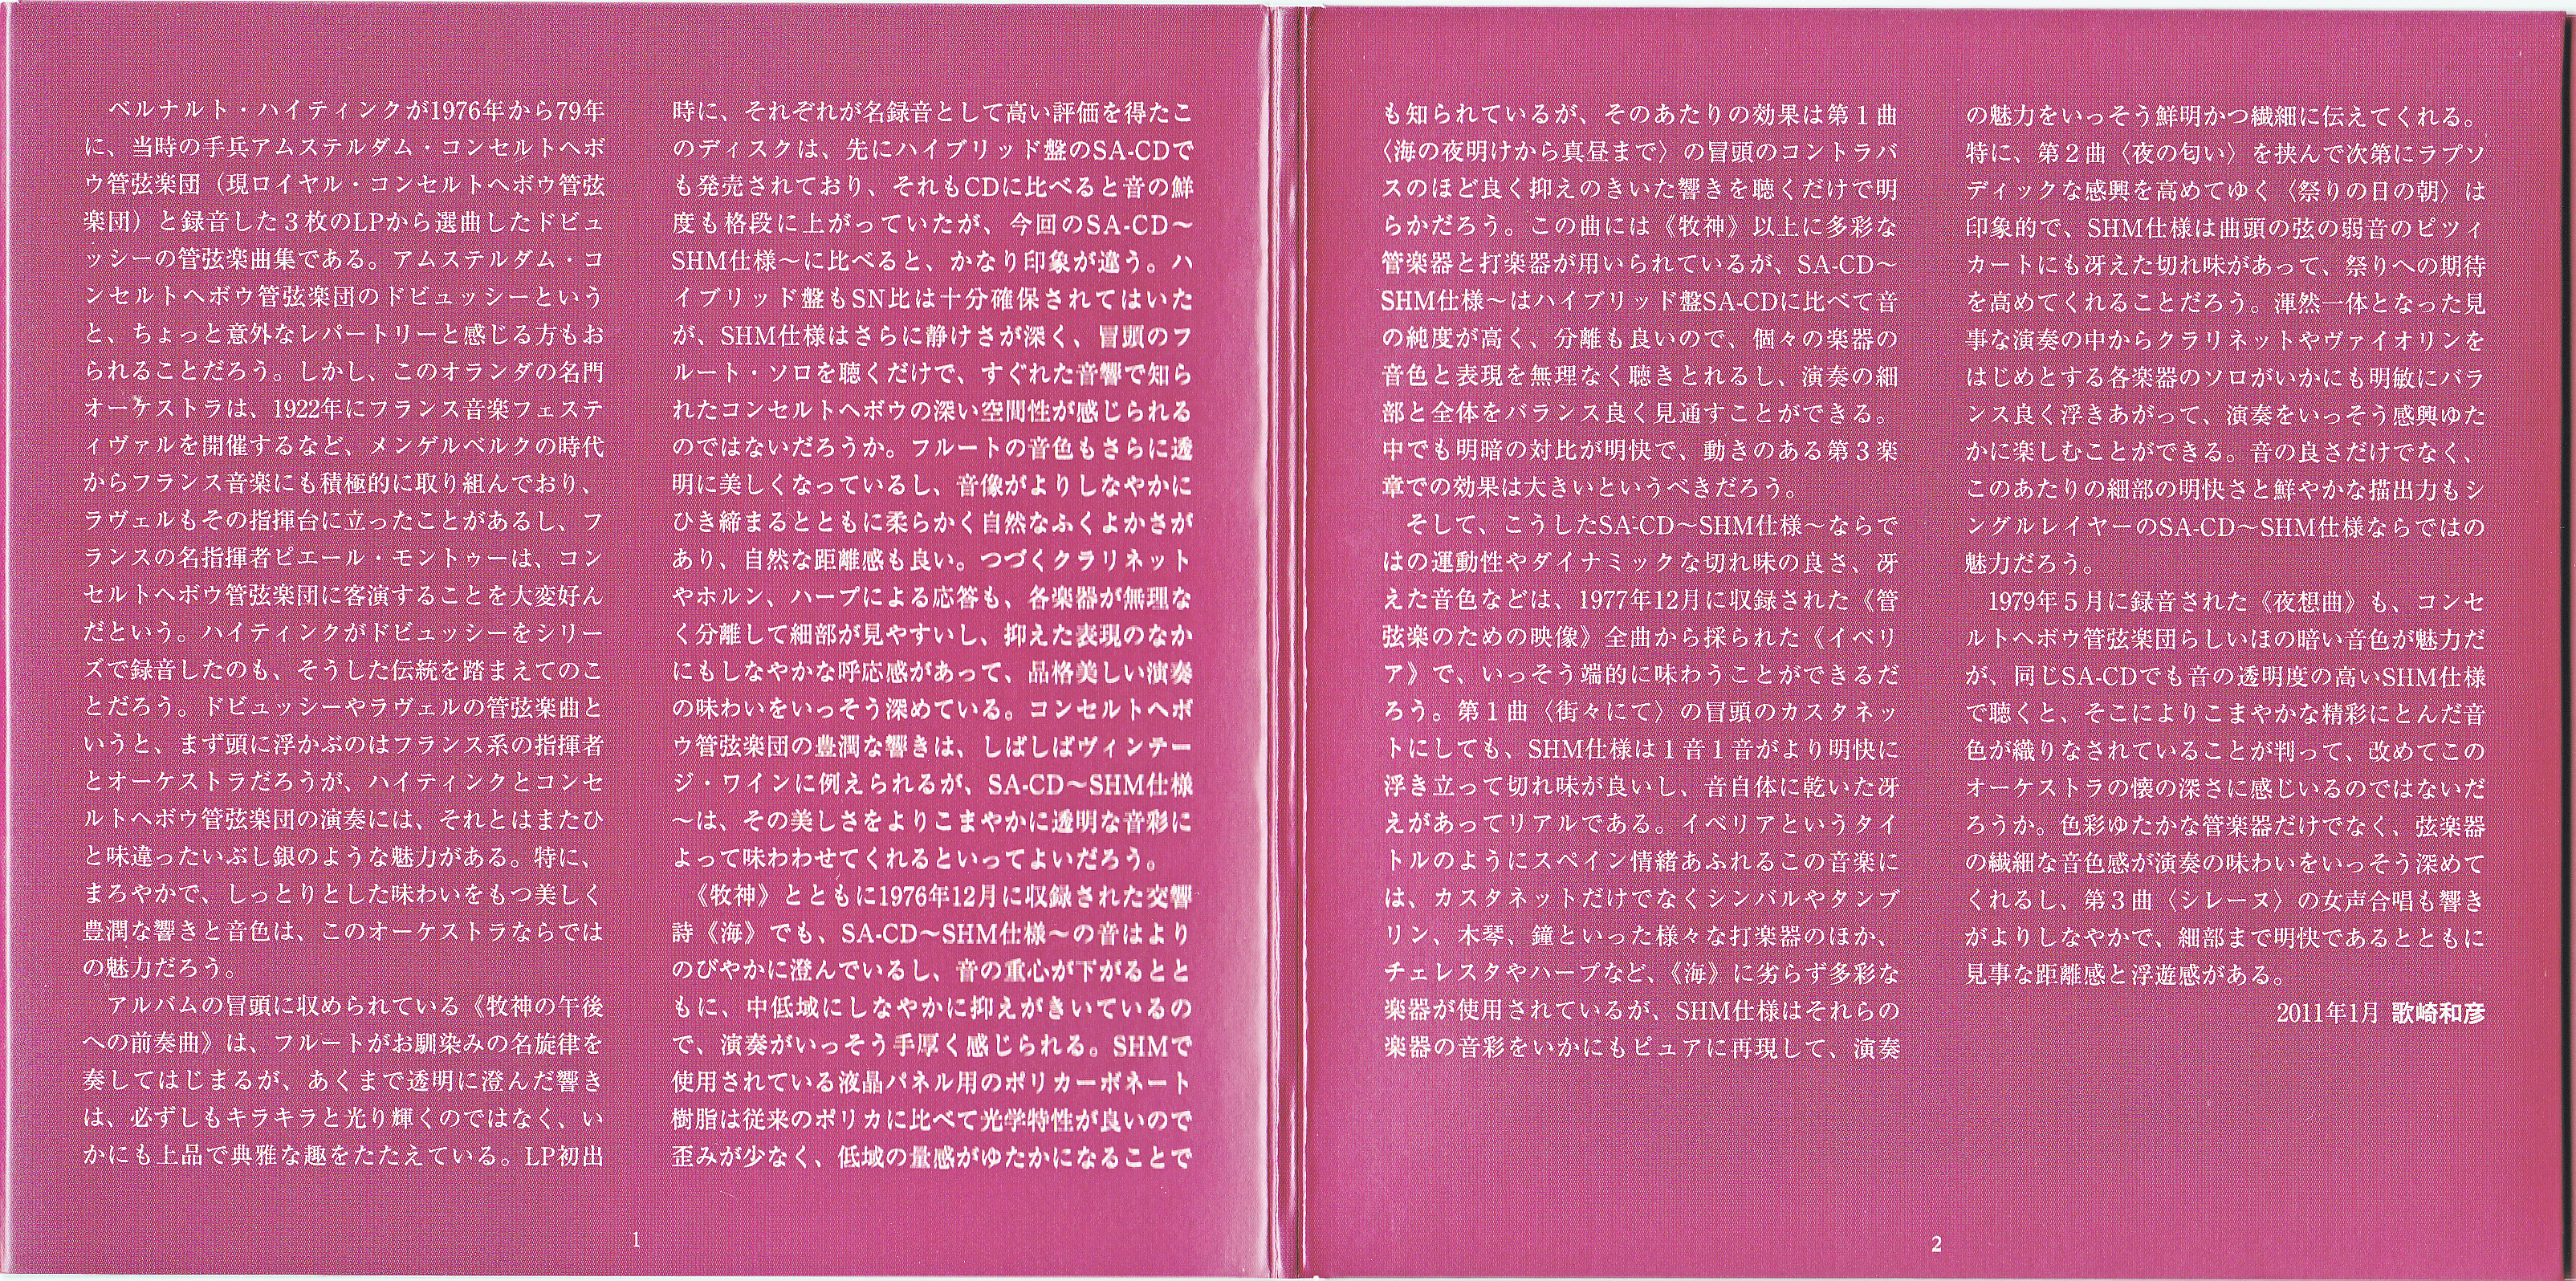 ベルナルト・ハイティンクが1976年から79年
に、当時の手兵アムステルダム・コンセルトヘボ
ウ管弦楽団（現ロイヤル・コンセルトヘボウ管弦
楽団）と録音した３枚のLPから選曲したドビュ
ッシーの管弦楽曲集である。アムステルダム・コ
ンセルトヘボウ管弦楽団のドビュッシーという
と、ちょっと意外なレパートリーと感じる方もお
られることだろう。しかし、このオランダの名門
オーケストラは、1922年にフランス音楽フェステ
ィヴァルを開催するなど、メンゲルベルクの時代
からフランス音楽にも積極的に取り組んでおり、
ラヴェルもその指揮台に立ったことがあるし、フ
ランスの名指揮者ピエール・モントゥーは、コン
セルトヘボウ管弦楽団に客演することを大変好ん
だという。ハイティンクがドビュッシーをシリー
ズで録音したのも、そうした伝統を踏まえてのこ
とだろう。ドビュッシーやラヴェルの管弦楽曲と
いうと、まず頭に浮かぶのはフランス系の指揮者
とオーケストラだろうが、ハイティンクとコンセ
ルトヘボウ管弦楽団の演奏には、それとはまたひ
と味違ったいぶし銀のような魅力がある。特に、
まろやかで、しっとりとした味わいをもつ美しく
豊潤な響きと音色は、このオーケストラならでは
の魅力だろう。
アルバムの冒頭に収められている《牧神の午後
への前奏曲》は、フルートがお馴染みの名旋律を
奏してはじまるが、あくまで透明に澄んだ響き
は、必ずしもキラキラと光り輝くのではなく、い
かにも上品で典雅な趣をたたえている。LP初出
時に、それぞれが名録音として高い評価を得たこ
のディスクは、先にハイブリッド盤のSA-CDで
も発売されており、それもCDに比べると音の鮮
度も格段に上がっていたが、今回のSA-CD～
SHM仕様～に比べると、かなり印象が違う。ハ
イブリッド盤もSN比は十分確保されてはいた
が、SHM仕様はさらに静けさが深く、冒頭のフ
ルート・ソロを聴くだけで、すぐれた音響で知ら
れたコンセルトヘボウの深い空間性が感じられる
のではないだろうか。フルートの音色もさらに透
明に美しくなっているし、音像がよりしなやかに
ひき締まるとともに柔らかく自然なふくよかさが
あり、自然な距離感も良い。つづくクラリネット
やホルン、ハープによる応答も、各楽器が無理な
く分離して細部が見やすいし、抑えた表現のなか
にもしなやかな呼応感があって、品格美しい演奏
の味わいをいっそう深めている。コンセルトヘボ
ウ管弦楽団の豊潤な響きは、しばしばヴィンテー
ジ・ワインに例えられるが、SA-CD～SHM仕様
～は、その美しさをよりこまやかに透明な音彩に
よって味わわせてくれるといってよいだろう。
《牧神》とともに1976年12月に収録された交響
詩《海》でも、SA-CD～SHM仕様～の音はより
のびやかに澄んでいるし、音の重心が下がるとと
もに、中低域にしなやかに抑えがきいているの
で、演奏がいっそう手厚く感じられる。SHMで
使用されている液晶パネル用のポリカーボネート
樹脂は従来のポリカに比べて光学特性が良いので
歪みが少なく、低域の量感がゆたかになることで
1
も知られているが、そのあたりの効果は第１曲
〈海の夜明けから真昼まで〉の冒頭のコントラバ
スのほど良く抑えのきいた響きを聴くだけで明
らかだろう。この曲には《牧神》以上に多彩な
管楽器と打楽器が用いられているが、SA-CD～
SHM仕様～はハイブリッド盤SA-CDに比べて音
の純度が高く、分離も良いので、個々の楽器の
音色と表現を無理なく聴きとれるし、演奏の細
部と全体をバランス良く見通すことができる。
中でも明暗の対比が明快で、動きのある第３楽
章での効果は大きいというべきだろう。
そして、こうしたSA-CD～SHM仕様～ならで
はの運動性やダイナミックな切れ味の良さ、冴
えた音色などは、1977年12月に収録された《管
弦楽のための映像》全曲から採られた《イベリ
ア》で、いっそう端的に味わうことができるだ
ろう。第１曲〈街々にて〉の冒頭のカスタネッ
トにしても、SHM仕様は１音１音がより明快に
浮き立って切れ味が良いし、音自体に乾いた冴
えがあってリアルである。イベリアというタイ
トルのようにスペイン情緒あふれるこの音楽に
は、カスタネットだけでなくシンバルやタンブ
リン、木琴、鐘といった様々な打楽器のほか、
チェレスタやハープなど、《海》に劣らず多彩な
楽器が使用されているが、SHM仕様はそれらの
楽器の音彩をいかにもピュアに再現して、演奏
の魅力をいっそう鮮明かつ繊細に伝えてくれる。
特に、第２曲〈夜の匂い〉を挟んで次第にラプソ
ディックな感興を高めてゆく〈祭りの日の朝〉は
印象的で、SHM仕様は曲頭の弦の弱音のピツィ
カートにも冴えた切れ味があって、祭りへの期待
を高めてくれることだろう。渾然一体となった見
事な演奏の中からクラリネットやヴァイオリンを
はじめとする各楽器のソロがいかにも明敏にバラ
ンス良く浮きあがって、演奏をいっそう感興ゆた
かに楽しむことができる。音の良さだけでなく、
このあたりの細部の明快さと鮮やかな描出力もシ
ングルレイヤーのSA-CD～SHM仕様ならではの
魅力だろう。
1979年５月に録音された《夜想曲》も、コンセ
ルトヘボウ管弦楽団らしいほの暗い音色が魅力だ
が、同じSA-CDでも音の透明度の高いSHM仕様
で聴くと、そこによりこまやかな精彩にとんだ音
色が織りなされていることが判って、改めてこの
オーケストラの懐の深さに感じいるのではないだ
ろうか。色彩ゆたかな管楽器だけでなく、弦楽器
の繊細な音色感が演奏の味わいをいっそう深めて
くれるし、第３曲〈シレーヌ〉の女声合唱も響き
がよりしなやかで、細部まで明快であるとともに
見事な距離感と浮遊感がある。
2011年1月 歌崎和彦
2